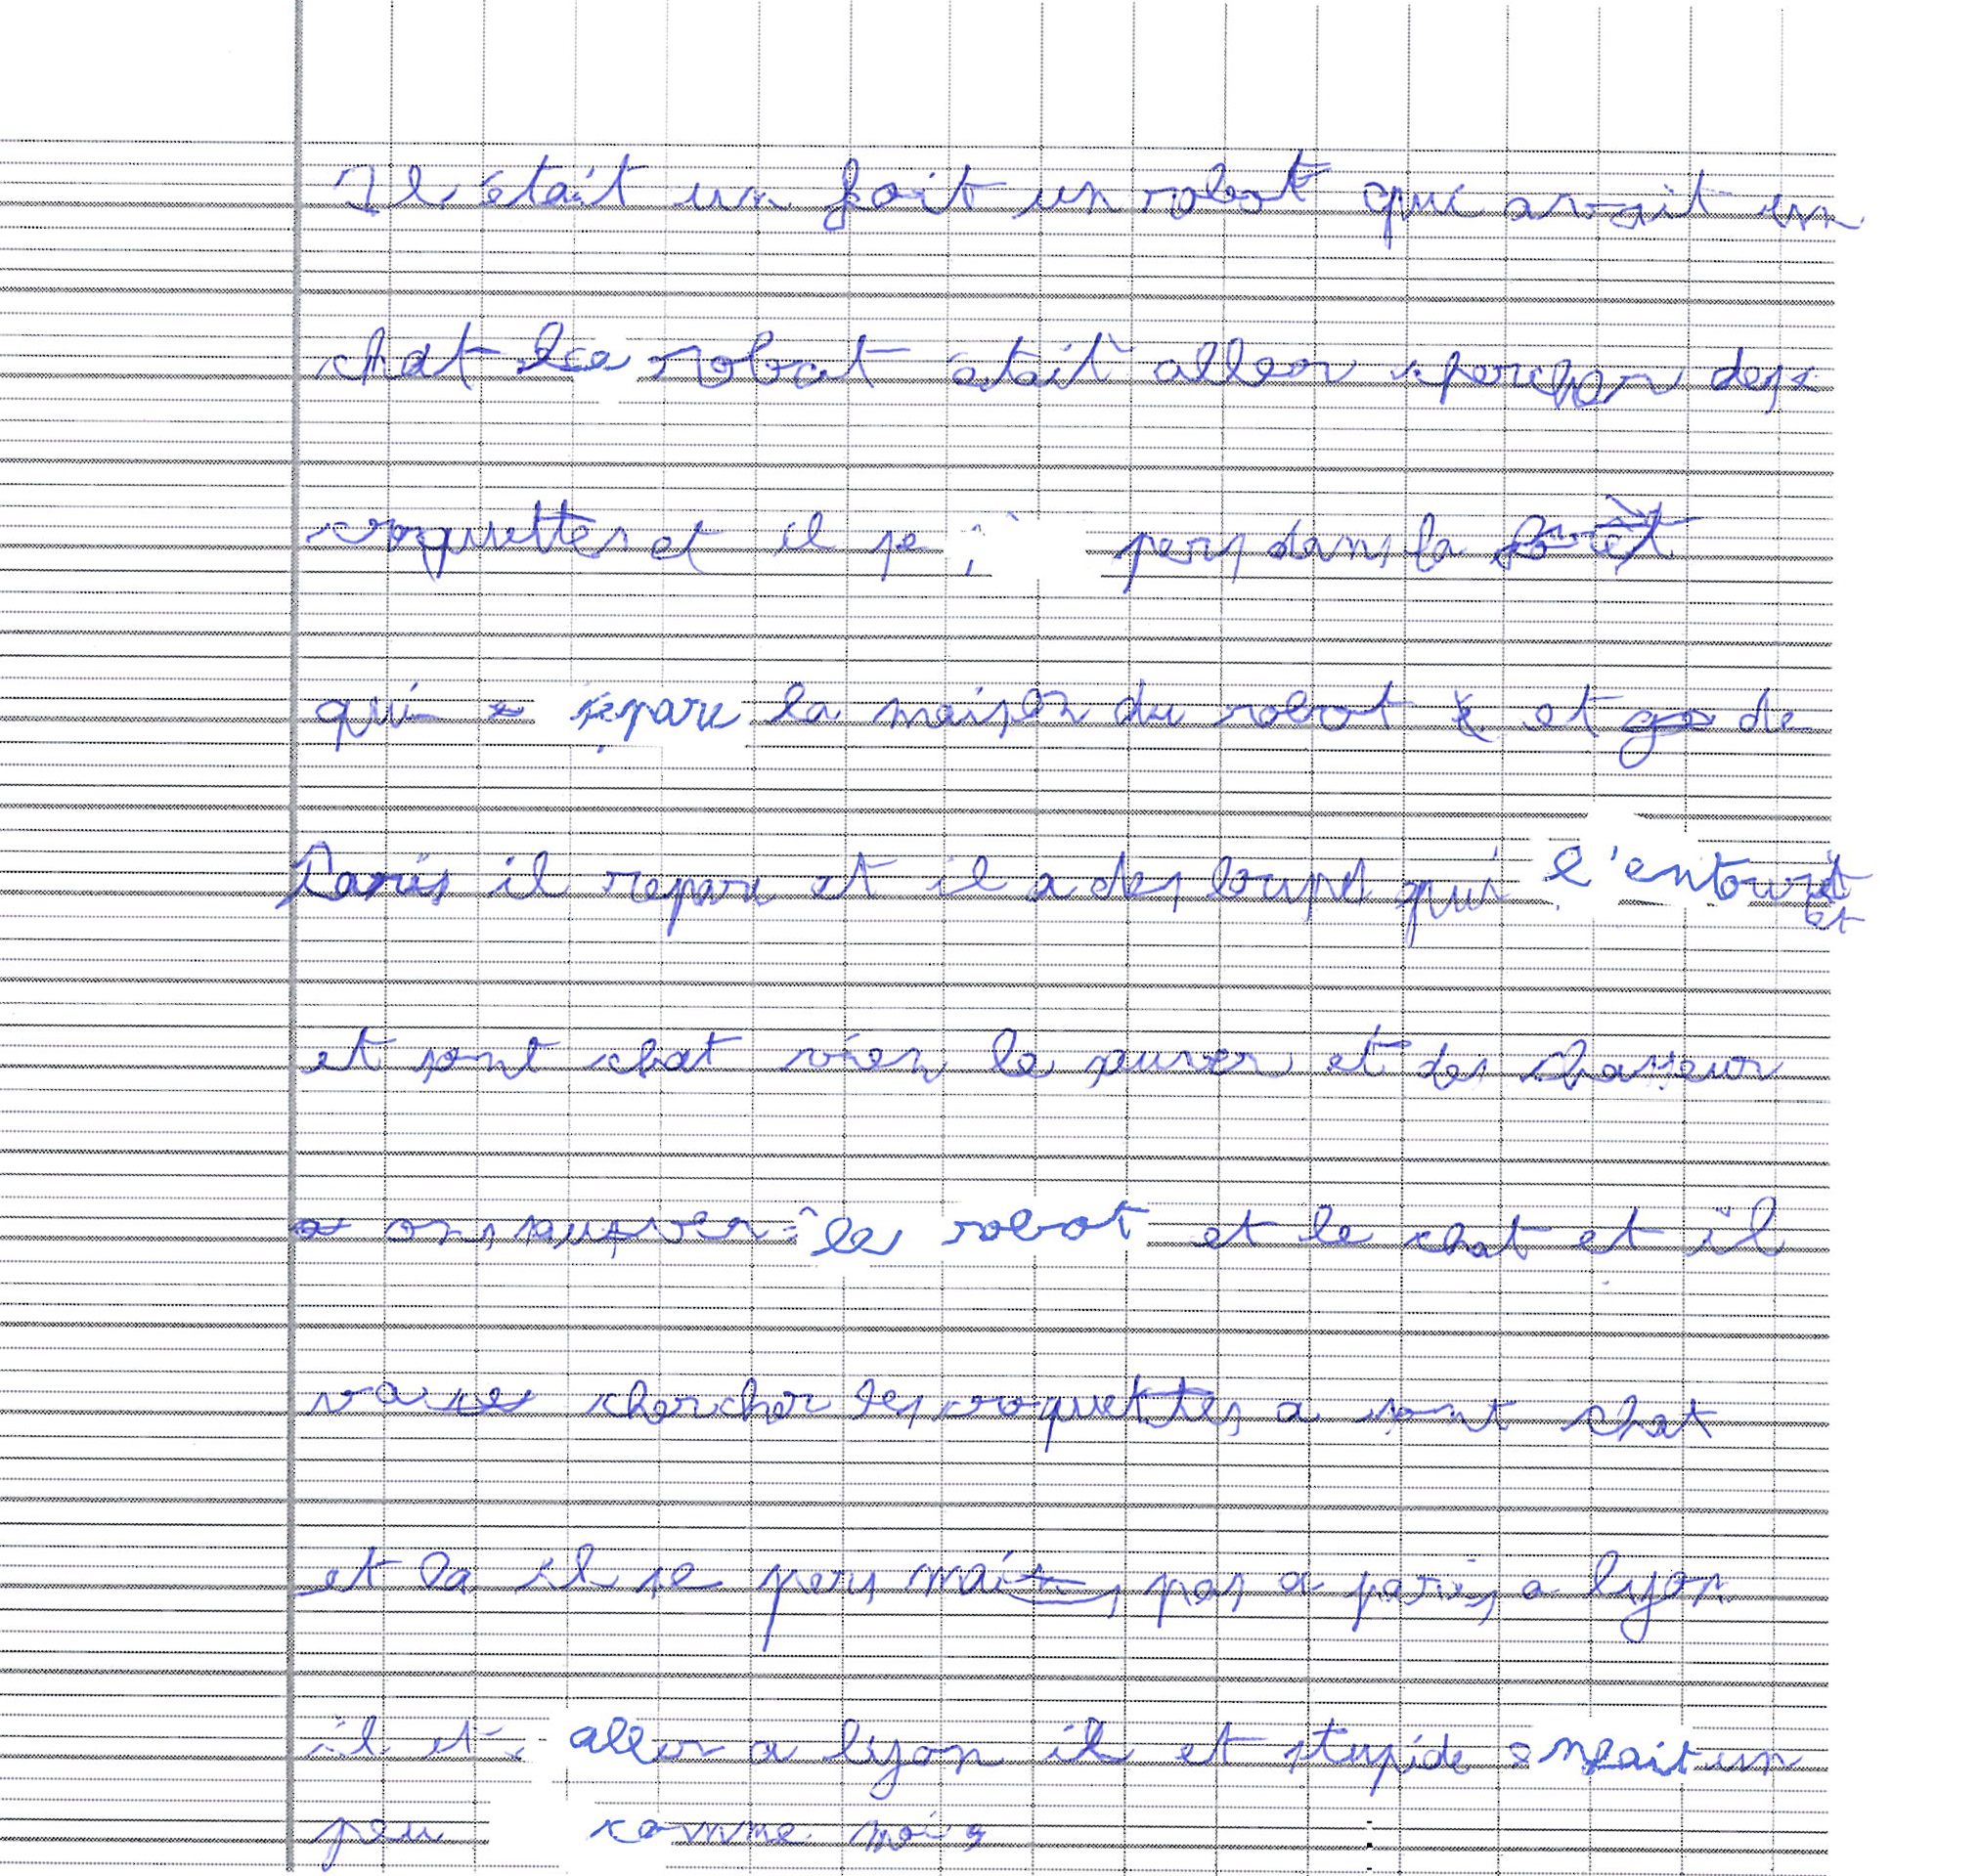 Il était un foit un robot qui avait un
chat le robot était aller chercher des
croquettes et il se pers dans la forêt
qui separe la maison du robot et de
Paris il repare et il a des loups qui l'entourt
et
et sont chat vien le suver et des chasseur
ons sauver les robot et le chat et il
va chercher les croquettes a sont chat
et la il se pers mais pas a paris a lyon
il et aller a lyon il et stupide enfait un
peu comme moi